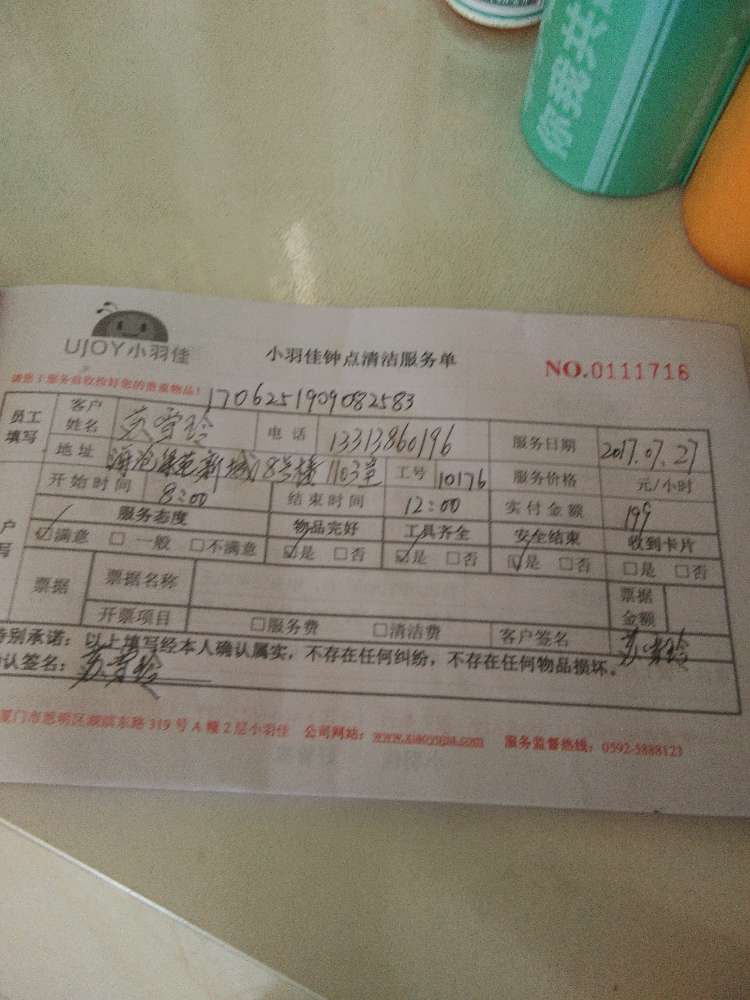 你我共
UJOY小羽佳
小羽佳钟点清洁服务单
NO.0111716
请您于服务前收检好您的贵重物品!
1706251909082583
员工填写 客户姓名 电话 13313860196 服务日期 2017.07.27
地址 海沧绿苑新城18号楼1103室 工号 10176 服务价格 元/小时
开始时间 8:00 结束时间 12:00 实付金额 199
服务态度 物品完好 工具齐全 安全结束 收到卡片
户写 ☑满意 □一般 □不满意 ☑是 □否 ☑是 □否 ☑是 □否 □是 □否
票据 票据名称 票据金额
开票项目 □服务费 □清洁费 客户签名
特别承诺:以上填写经本人确认属实,不存在任何纠纷,不存在任何物品损坏。
确认签名:
厦门市思明区湖滨东路319号A幢2层小羽佳 公司网站:www.xiaoyujia.com 服务监督热线:0592-5888123